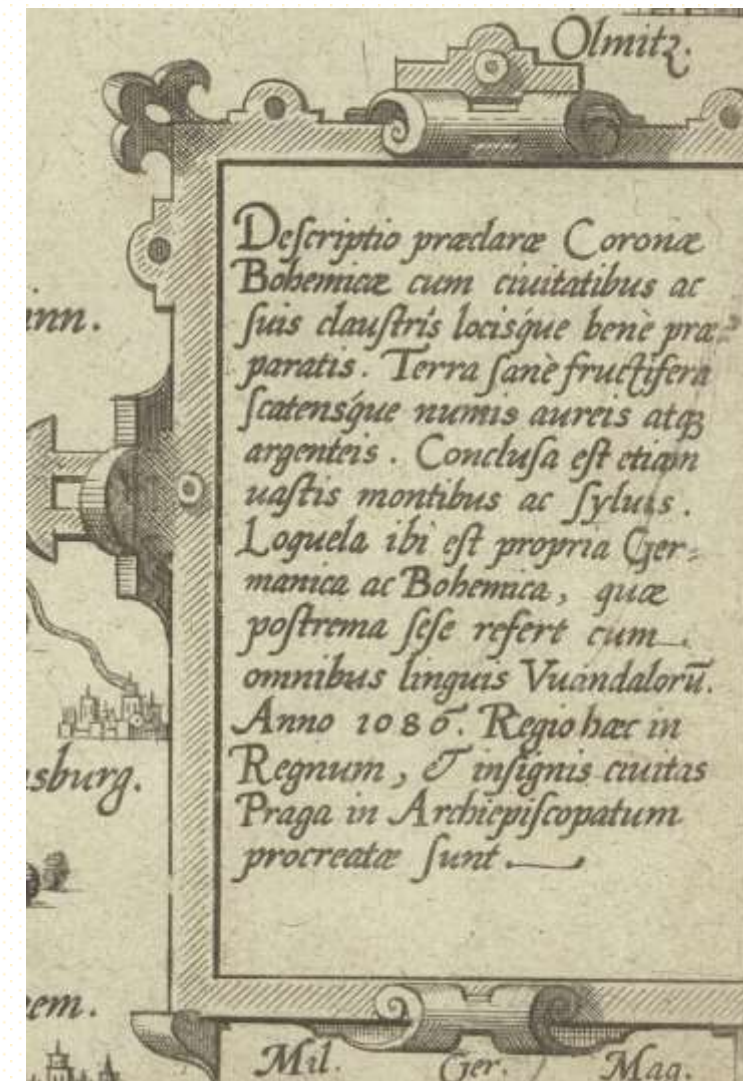 Olmitz.
Deſcriptio præclaræ Coronæ
Bohemicæ cum ciuitatibus ac
ſuis clauſtris locisque benè præ=
paratis. Terra ſanè fructifera
ſcatensque numis aureis atqꝫ
argenteis. Concluſa eſt etiam
uaſtis montibus ac ſyluis.
Loquela ibi eſt propria Ger=
manica ac Bohemica, quæ
poſtrema ſeſe refert cum
omnibus linguis Vuandalorū.
Anno 1086. Regio hæc in
Regnum, & inſignis ciuitas
Praga in Archiepiſcopatum
procreatæ ſunt.
inn.
sburg.
em.
Mil. Ger. Mag.